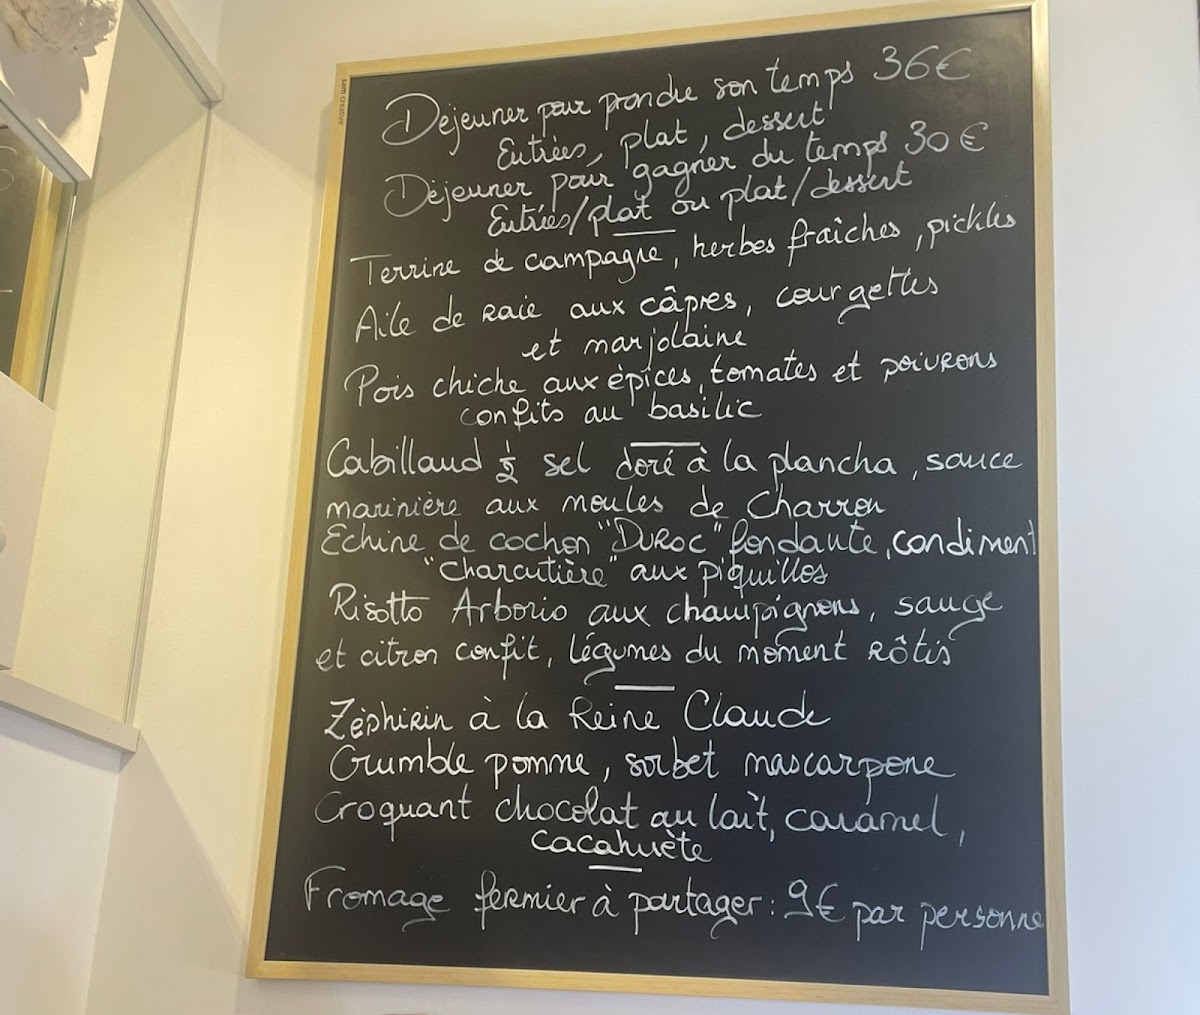 sam creative
Déjeuner pour prendre son temps 36€
Entrées, plat, dessert
Déjeuner pour gagner du temps 30€
Entrées/plat ou plat/dessert
Terrine de campagne, herbes fraîches, pickles
Aile de raie aux câpres, courgettes
et marjolaine
Pois chiche aux épices, tomates et poivrons
confits au basilic
Cabillaud ½ sel doré à la plancha, sauce
marinière aux moules de Charron
Echine de cochon "DUROC" fondante, condiment
"charcutière" aux piquillos
Risotto Arborio aux champignons, sauge
et citron confit, légumes du moment rôtis
Zéphirin à la Reine Claude
Crumble pomme, sorbet mascarpone
Croquant chocolat au lait, caramel,
cacahuète
Fromage fermier à partager : 9€ par personne